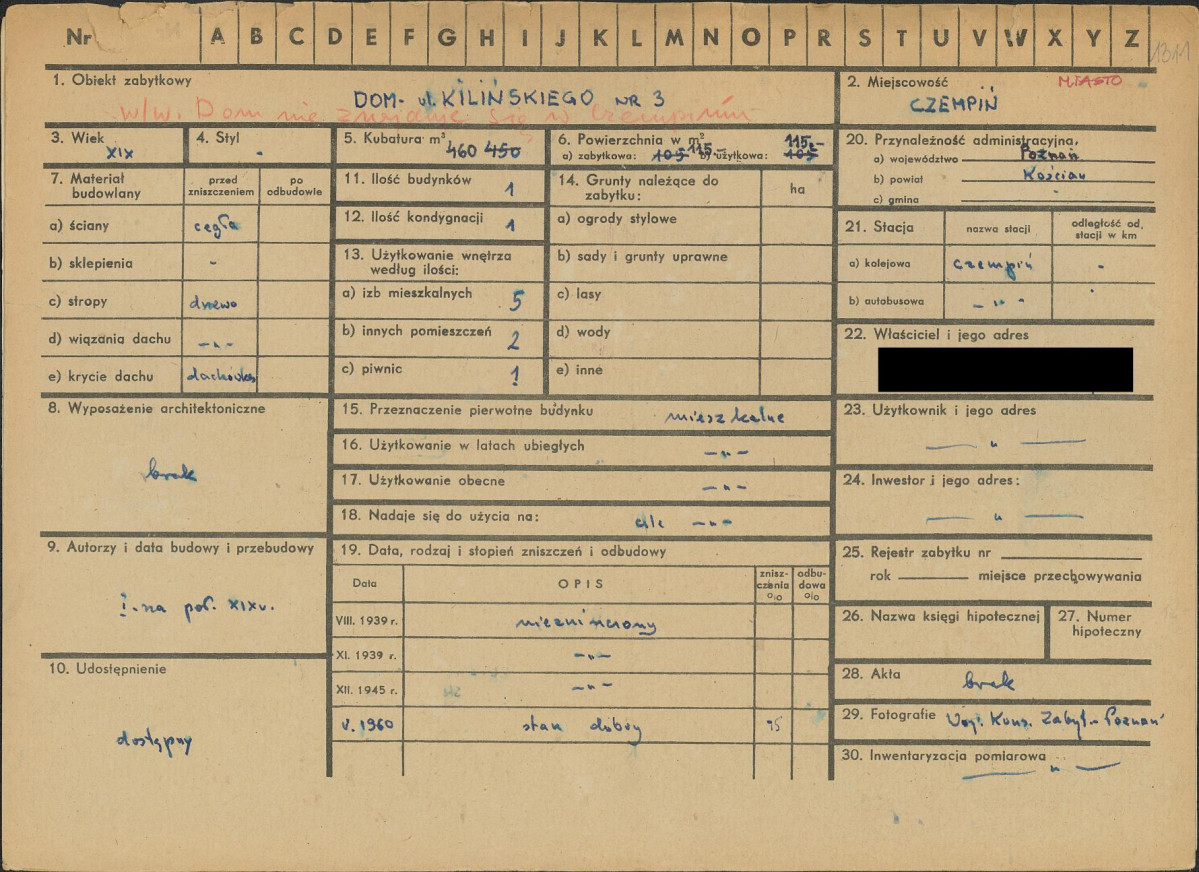 Nr A B C D E F G H I J K L M N O P R S T U V W X Y Z
1311
1. Obiekt zabytkowy
DOM - ul. KILIŃSKIEGO NR 3
w/w. Dom nie znajduje się w Czempiniu
2. Miejscowość MIASTO
CZEMPIŃ
3. Wiek
XIX
4. Styl
-
5. Kubatura m³
460 450
6. Powierzchnia w m²
a) zabytkowa: 105 115.- b) użytkowa: 105 115.-
20. Przynależność administracyjna.
a) województwo Poznań
b) powiat Kościan
c) gmina
7. Materiał budowlany
przed zniszczeniem
po odbudowie
a) ściany cegła
b) sklepienia -
c) stropy drewo
d) wiązania dachu -"-
e) krycie dachu dachówka
11. Ilość budynków 1
12. Ilość kondygnacji 1
13. Użytkowanie wnętrza
według ilości:
a) izb mieszkalnych 5
b) innych pomieszczeń 2
c) piwnic 1
14. Grunty należące do
zabytku:
ha
a) ogrody stylowe
b) sady i grunty uprawne
c) lasy
d) wody
e) inne
21. Stacja
nazwa stacji
odległość od.
stacji w km
a) kolejowa Czempiń -
b) autobusowa -"-
22. Właściciel i jego adres
8. Wyposażenie architektoniczne
brak
15. Przeznaczenie pierwotne budynku mieszkalne
16. Użytkowanie w latach ubiegłych -"-
17. Użytkowanie obecne -"-
18. Nadaje się do użycia na: cele -"-
23. Użytkownik i jego adres
-"-
24. Inwestor i jego adres:
-"-
9. Autorzy i data budowy i przebudowy
I.-sza poł. XIX w.
19. Data, rodzaj i stopień zniszczeń i odbudowy
Data
OPIS
znisz-
czenia
%
odbu-
dowa
%
VIII. 1939 r. niezniszczony
XI. 1939 r. -"-
XII. 1945 r. -"-
V. 1960 stan dobry 75
25. Rejestr zabytku nr
rok miejsce przechowywania
26. Nazwa księgi hipotecznej
27. Numer
hipoteczny
10. Udostępnienie
dostępny
28. Akta brak
29. Fotografie Woj. Kons. Zabyt. - Poznań
30. Inwentaryzacja pomiarowa
-"-